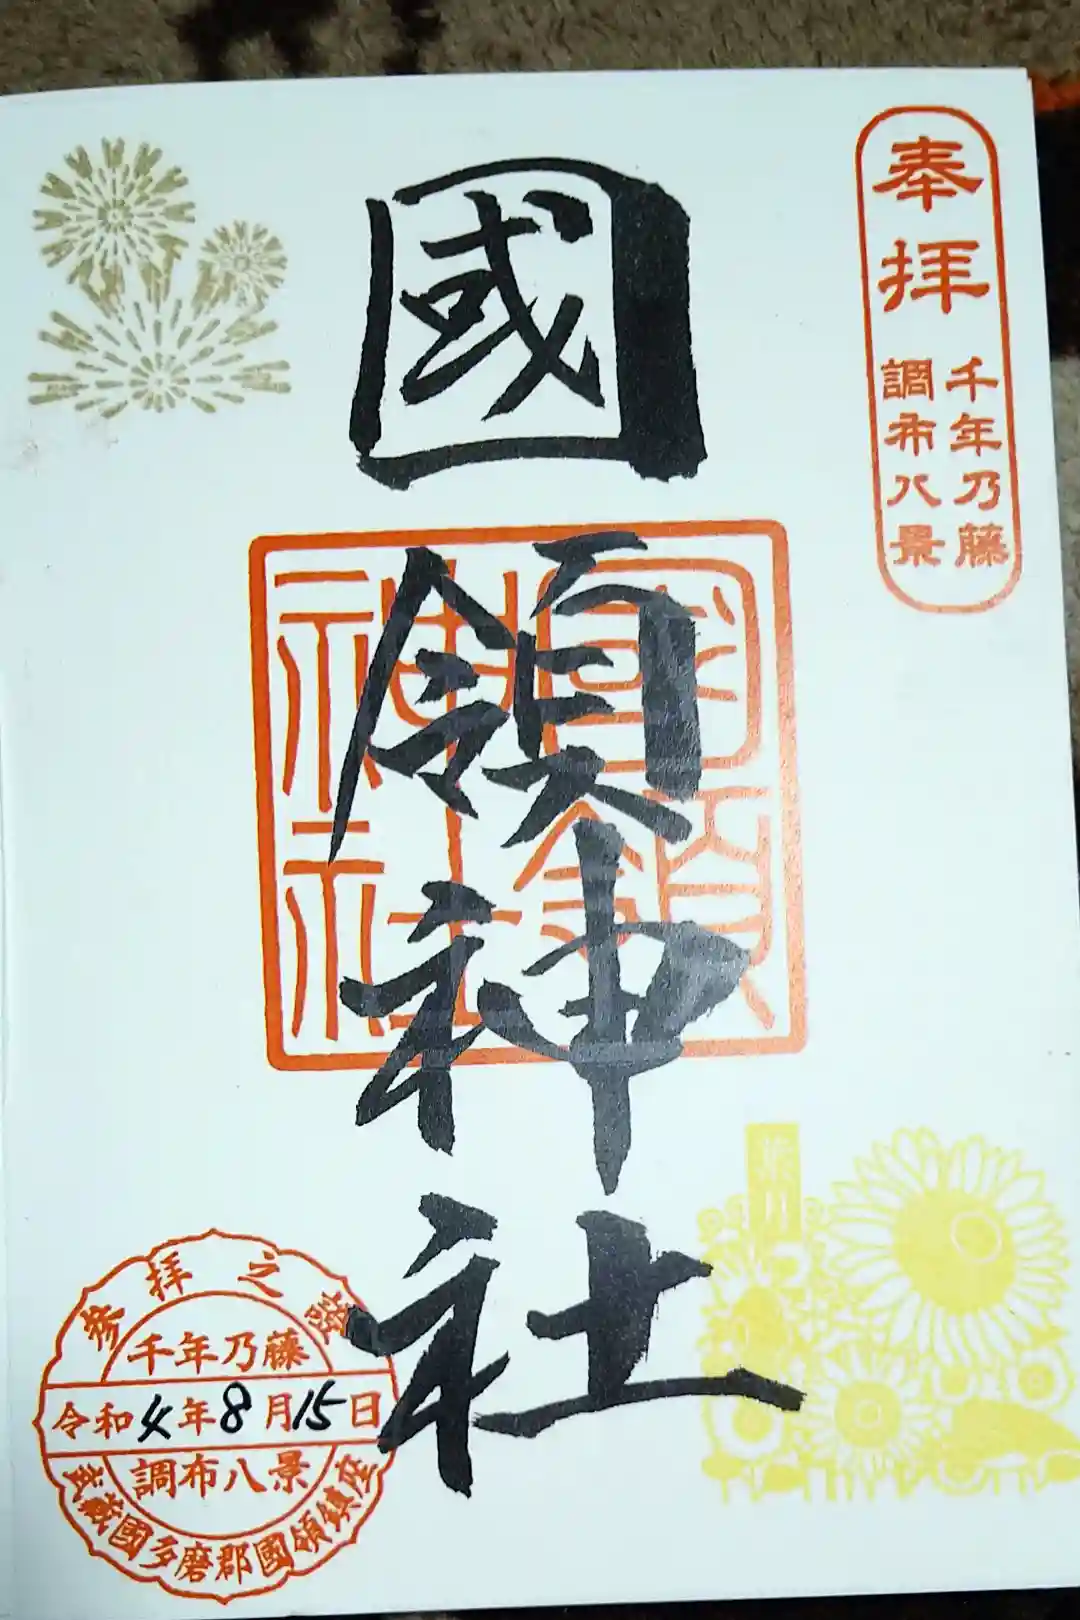 奉拝
千年乃藤
調布八景
國領神社
國領
神社
參拝之證
千年乃藤
令和4年8月15日
調布八景
武蔵國多磨郡國領鎮座